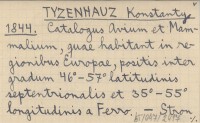 TYZENHAUZ Konstanty
1844. Catalogus Avium et Mam-
malium, quae habitant in re-
gionibus Europae, positis inter
gradum 46°-57° latitudinis
septentrionalis et 35°-55°
longitudinis a Ferro. — Stron